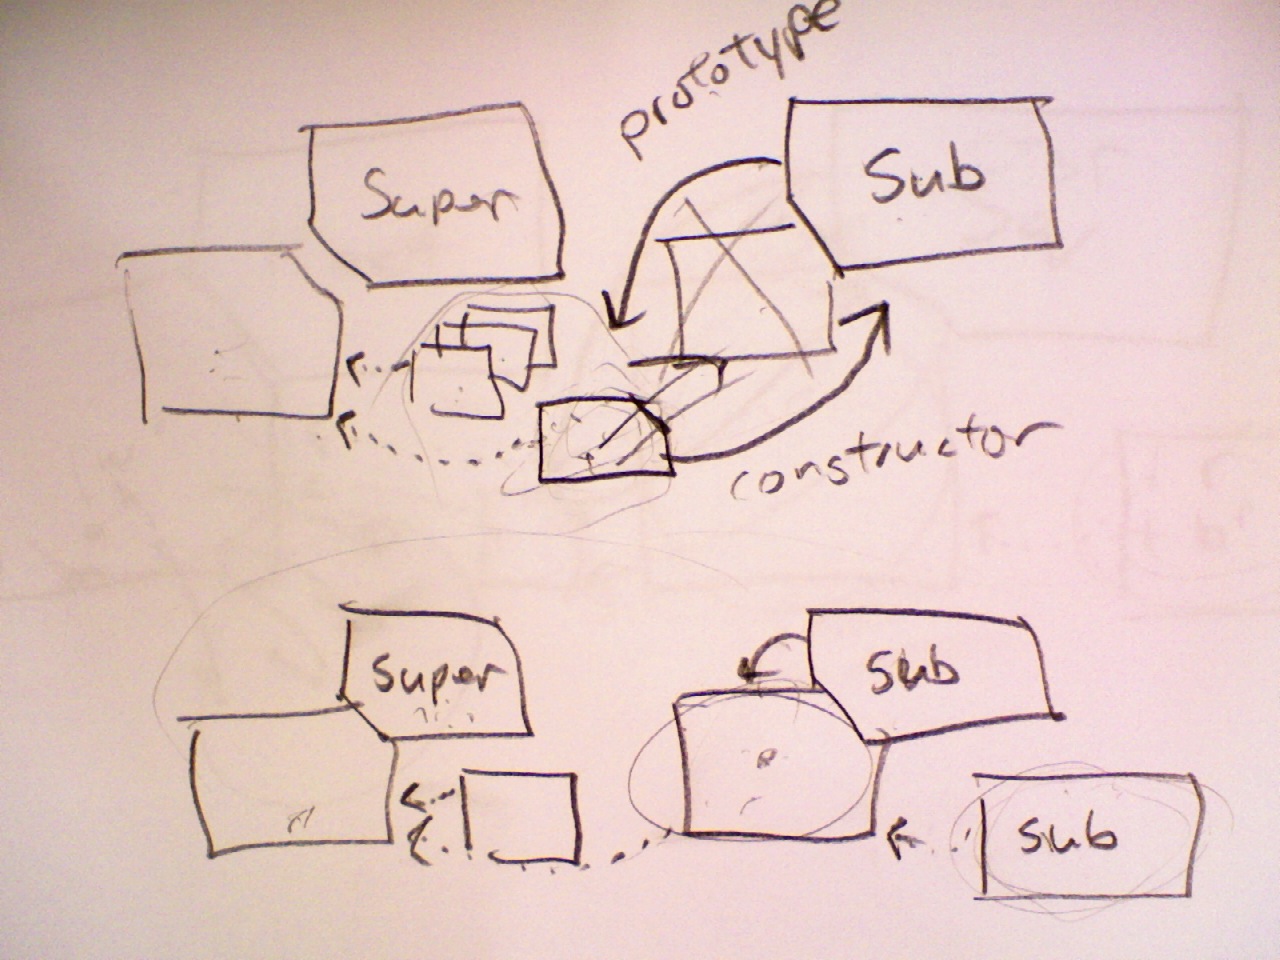 prototype
Super
Sub
constructor
Super
Sub
Sub